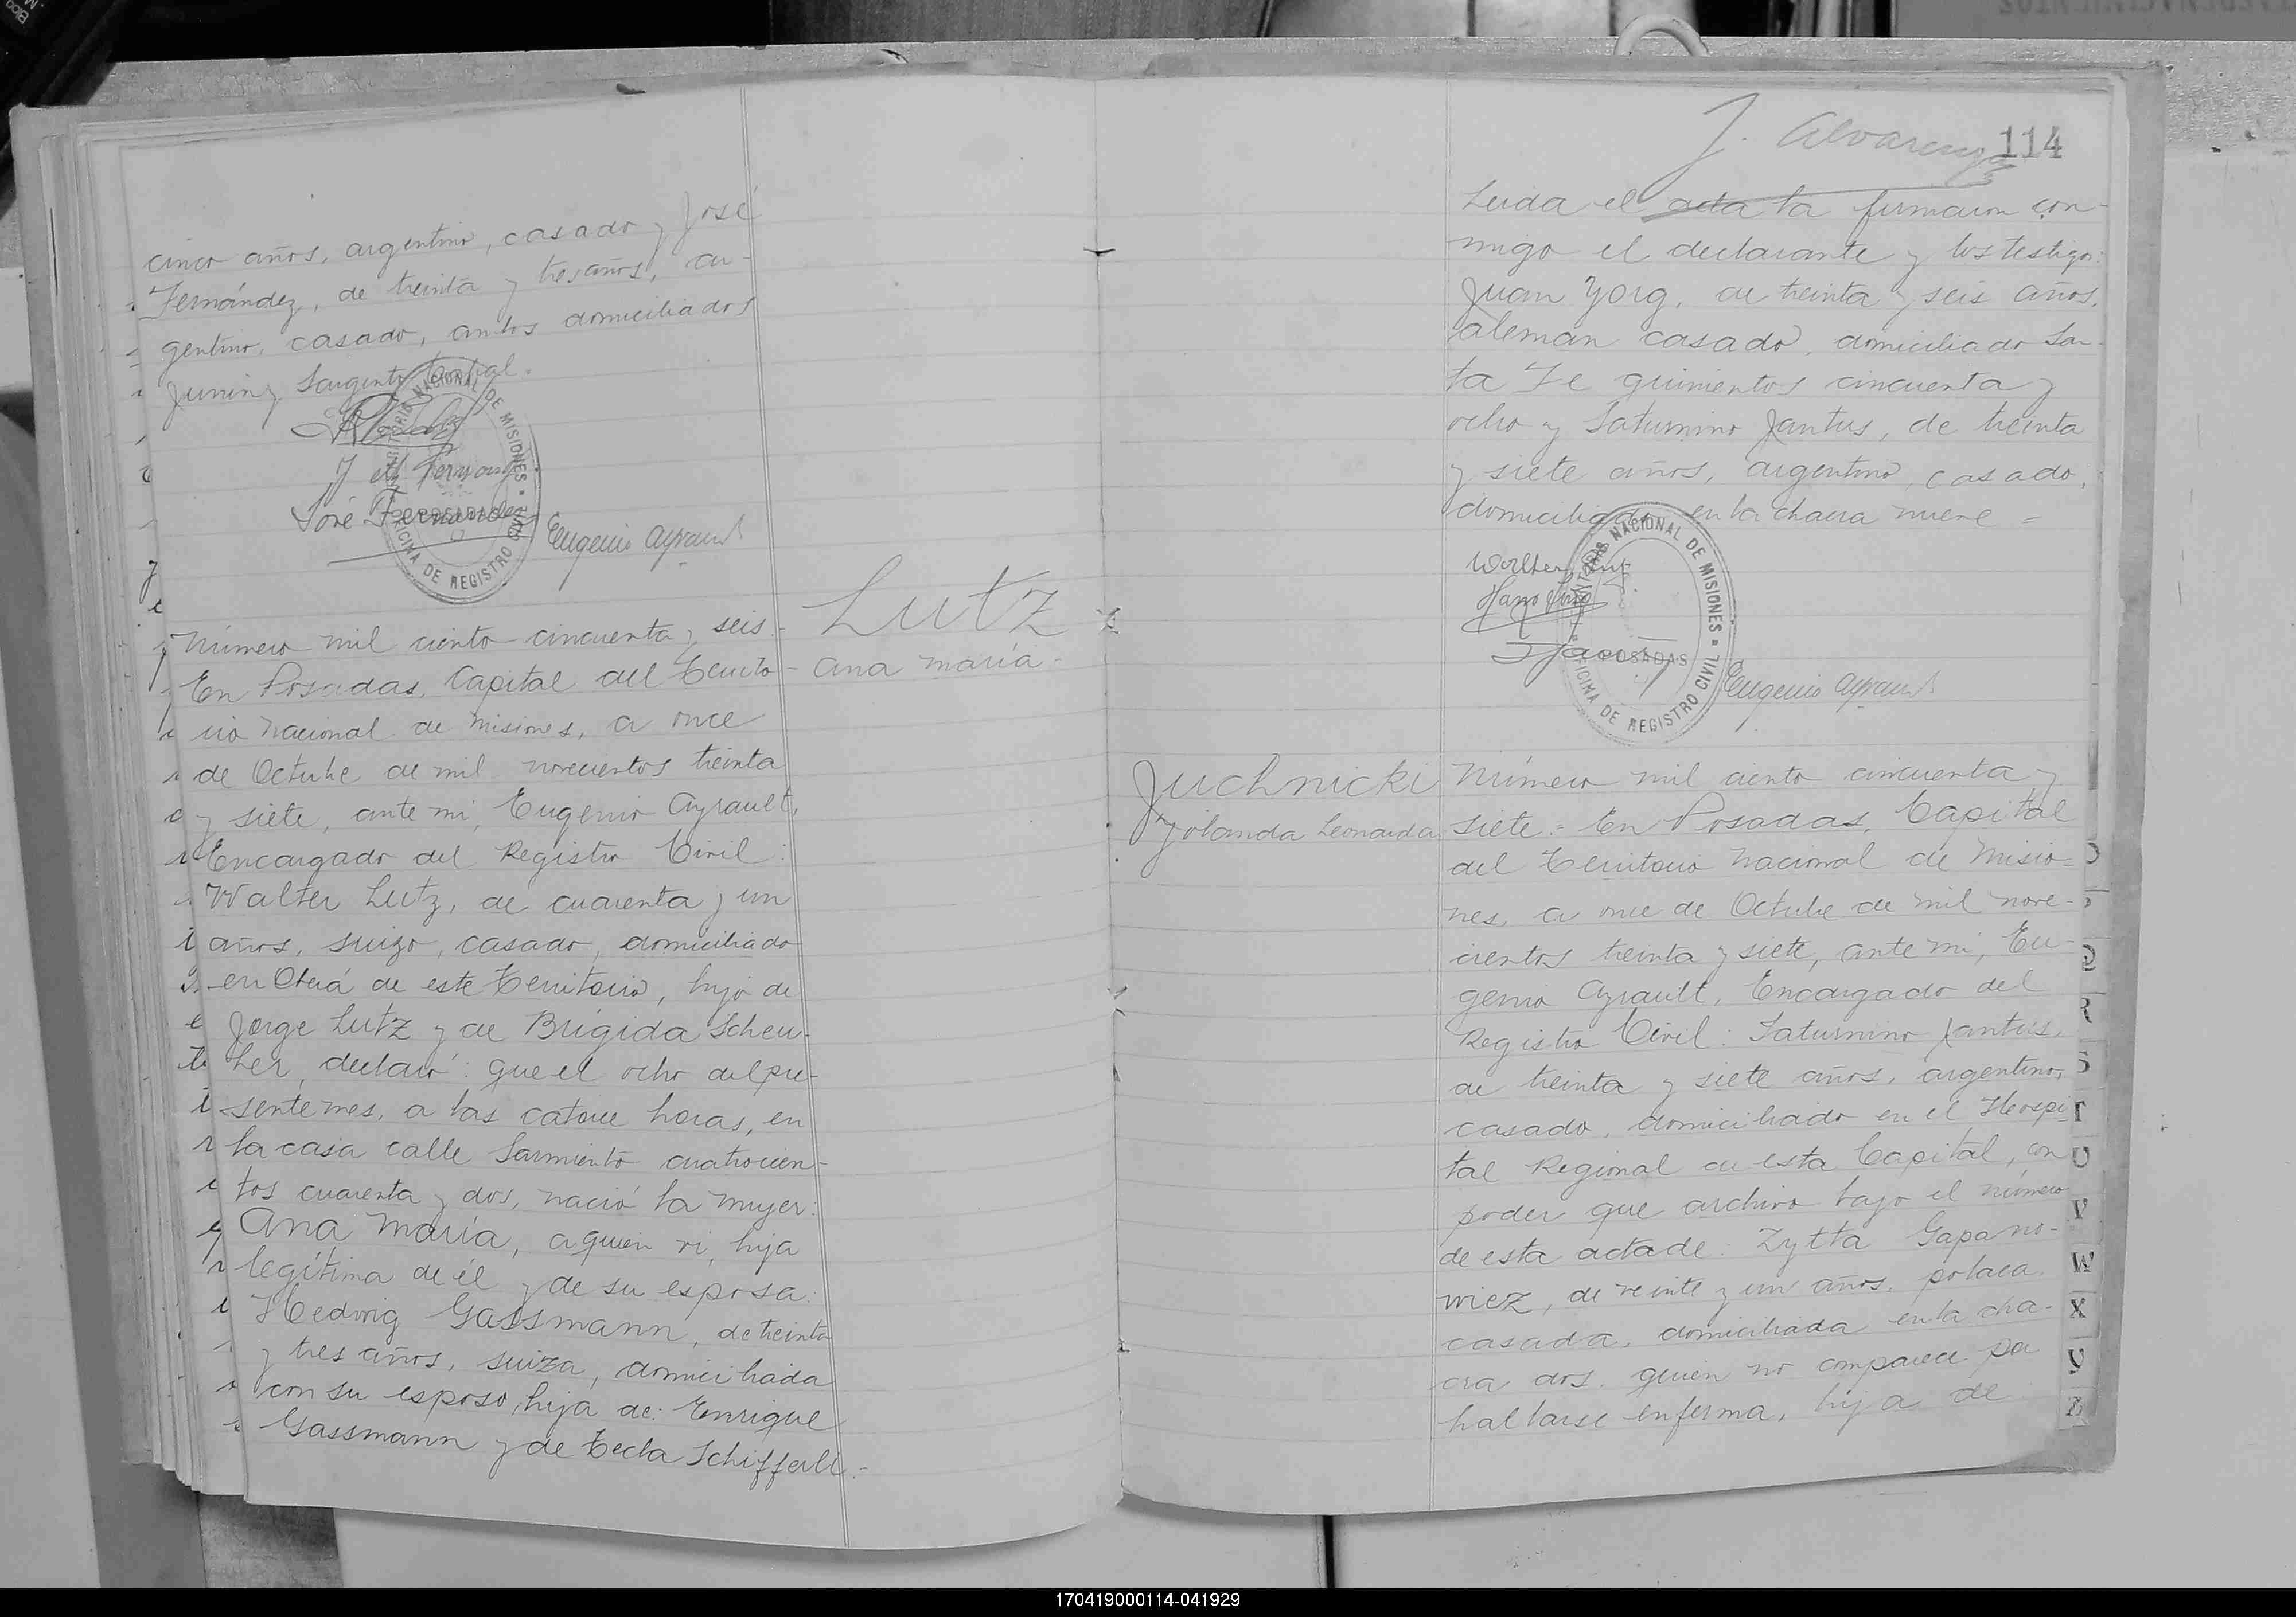 cinco años, argentino, casado y José
Fernández, de treinta y tres años, ar-
gentino, casado, ambos domiciliados
Junin y Sargento Cabral.
TERRITORIO NACIONAL DE MISIONES
POSADAS
OFICINA DE REGISTRO CIVIL
José Fernandez
Eugenio Ayrault
Número mil ciento cincuenta y seis.-
En Posadas, Capital del Territo-
rio Nacional de Misiones, a once
de Octubre de mil novecientos treinta
y siete, ante mi, Eugenio Ayrault,
Encargado del Registro Civil:
Walter Lutz, de cuarenta y un
años, suizo, casado, domiciliado
en Oberá de este Territorio, hijo de
Jorge Lutz y de Brigida Scheu-
ber, declaró: que el ocho del pre-
sente mes, a las catorce horas, en
la casa calle Sarmiento cuatrocien-
tos cuarenta y dos, nació la mujer:
Ana María, a quien vi, hija
legítima de él y de su esposa:
Hedwig Gassmann, de treinta
y tres años, suiza, domiciliada
con su esposo, hija de: Enrique
Gassmann y de Tecla Schifferli.-
Lutz
Ana María-
J. Alvarenga
114
Leida el acta la firmaron con-
migo el declarante y los testigos:
Juan Yorg, de treinta y seis años,
aleman casado, domiciliado San-
ta Fe quinientos cincuenta y
ocho y Saturnino Jantus, de treinta
y siete años, argentino, casado,
domiciliado en la chacra nueve =
Walter Lutz
TERRITORIO NACIONAL DE MISIONES
POSADAS
OFICINA DE REGISTRO CIVIL
Eugenio Ayrault
Juchnicki
Yolanda Leonarda
Número mil ciento cincuenta y
siete.- En Posadas, Capital
del Territorio Nacional de Misio-
nes, a once de Octubre de mil nove-
cientos treinta y siete, ante mi, Eu-
genio Ayrault, Encargado del
Registro Civil: Saturnino Jantus,
de treinta y siete años, argentino,
casado, domiciliado en el Hospi-
tal Regional de esta Capital, con
poder que archivo bajo el número
de esta acta de: Zytta Gapano-
wiez, de veinte y un años, polaca
casada, domiciliada en la cha-
cra dos, quien no comparece por
hallarse enferma, hija de
Q
R
S
T
U
V
W
X
Y
Z
170419000114-041929